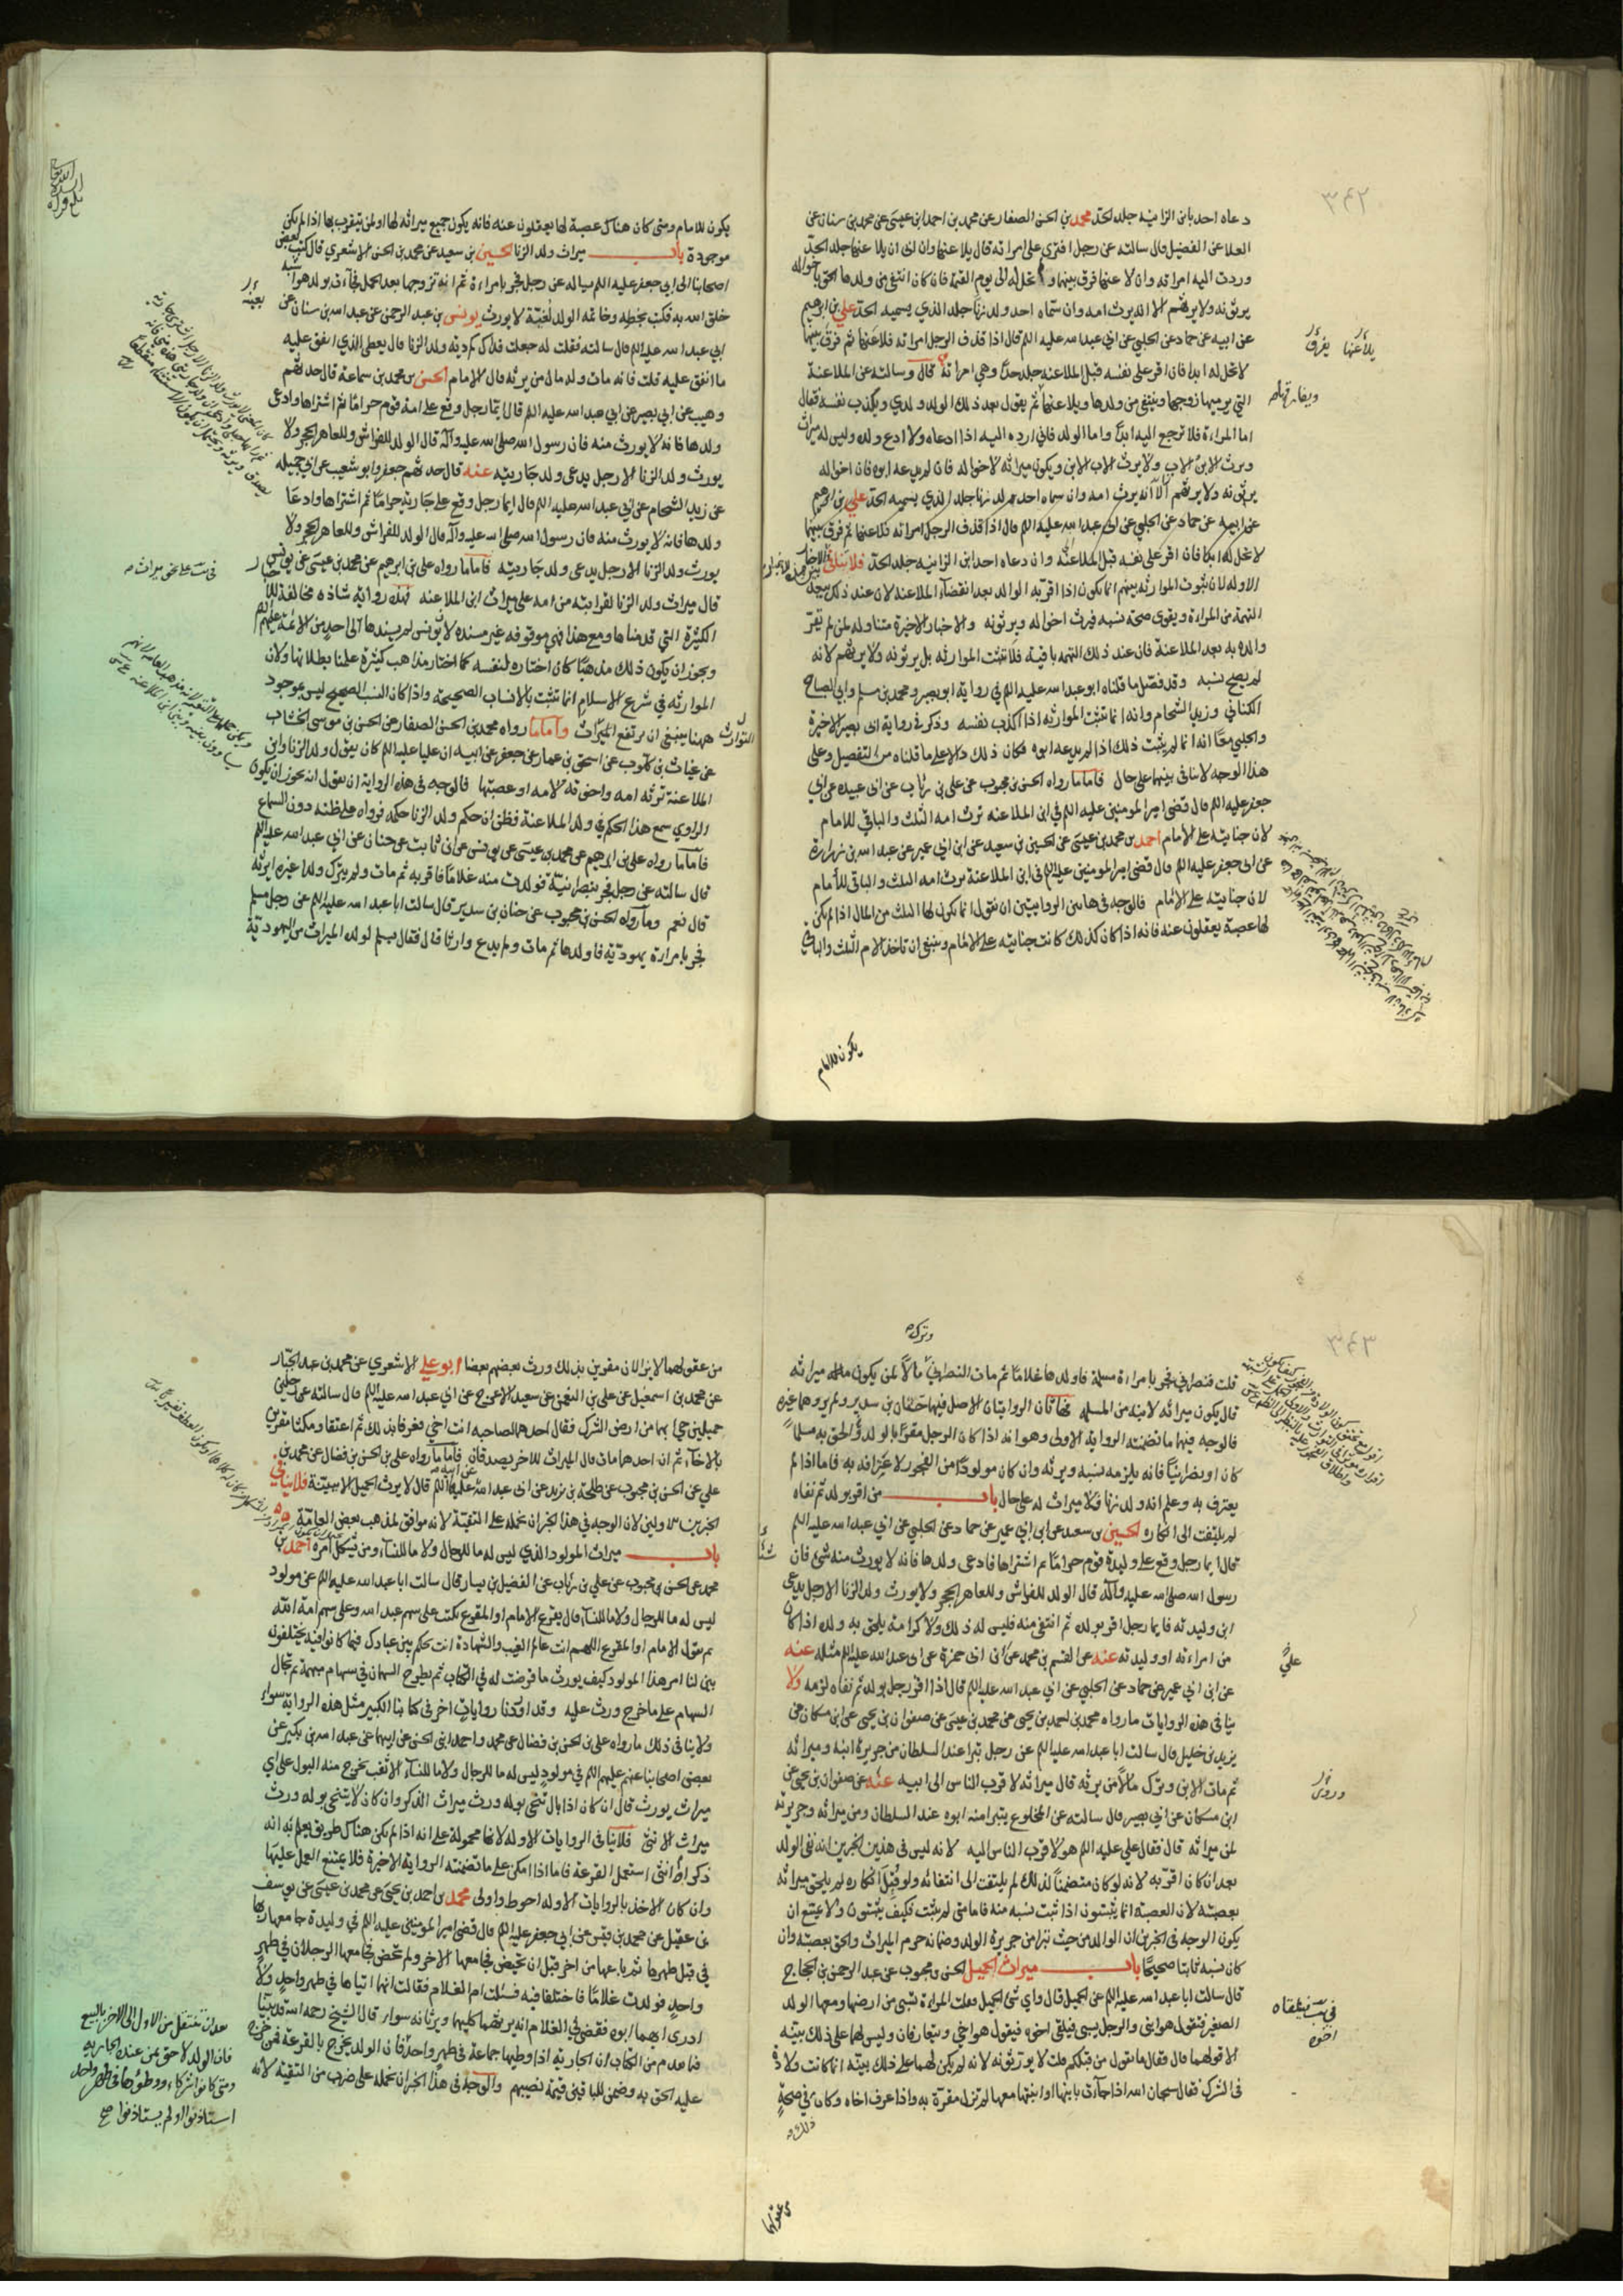 دعاه احد بابن الزانية جلد الحد محمد بن الحسن الصفار عن محمد بن احمد ابن عيسى عن محمد بن سنان عن
العلا عن الفضيل قال سالته عن رجل افترى على امراته قال يلاعنها وان ابى ان يلاعنها جلد الحد
وردت اليه امراته وان لاعنها فرق بينهما و تحل له الى يوم القيمة فان كان انتفى من ولدها الحق باخواله
يرثونه ولا يرثهم الا انه يرث امه وان سماه احد ولد زنا جلد الذي يسميه الحد علي بن ابرهيم
عن ابيه عن حماد عن الحلبي عن ابي عبد الله عليه السلم قال اذا قذف الرجل امراته فلاعنها ثم فرق بينهما
لا تحل له ابدا فان اقر على نفسه قبل الملاعنه جلد حدا وهي امراته قال وسالته عن الملاعنة
التي يرميها زوجها وينتفي من ولدها ويلاعنها ثم يقول بعد ذلك الولد ولدي ويكذب نفسه فقال
اما المراءة فلا ترجع اليه ابدا واما الولد فاني ارده اليه اذا ادعاه ولا ادع ولده وليس له ميراث
ويرث الابن الاب ولا يرث الاب الابن ويكون ميراثه لاخواله فان لم يدعه ابوه فان اخواله
يرثونه ولا يرثهم الا انه يرث امه وان سماه احد ولد زنا جلد الذي يسميه الحد علي بن ابرهيم
عن ابيه عن حماد عن الحلبي عن ابي عبد الله عليه السلم قال اذا قذف الرجل امراته فلاعنها ثم فرق بينهما
لا تحل له ابدا فان اقر على نفسه قبل الملاعنه وان دعاه احد ابن الزانيه جلد الحد فلا تنافي
الاوله لان ثبوت الموارثه بينهم انما يكون اذا اقر به الوالد بعد انقضاء الملاعنه لان عند ذلك يبعد
التهمة من المراءة ويقوى صحة نسبه فيرث اخواله ويرثونه والاخبار الاخيرة متناوله لمن لم يقر
والده به بعد الملاعنة فان عند ذلك التهمه باقية فلا تثبت الموارثه بل يرثونه ولا يرثهم لانه
لم يصح نسبه وقد فصل ما قلناه ابو عبد الله عليه السلم في رواية ابو بصير ومحمد بن مسلم وابي الصباح
الكناني وزيد الشحام وانه انما تثبت الموارثه اذا اكذب نفسه وذكر في رواية ابى بصير الاخيرة
والحلبي معا انه انما لم يثبت ذلك اذا لم يدعه ابوه فكان ذلك دالا على ما قلناه من التفصيل وعلى
هذا الوجه لا تنافى بينهما على حال فاما ما رواه الحسن بن محبوب عن على بن رئاب عن ابى عبيده عن ابي
جعفر عليه السلم قال قضى امير المومنين عليه السلم في ابن الملاعنه ترث امه الثلث والباقي للامام
لان جنايته على الامام احمد بن محمد بن عيسى عن الحسين بن سعيد عن ابن ابي عمير عن عبد الله بن زرارة
عن ابى جعفر عليه السلم قال قضى امير المومنين عليه السلم في ابن الملاعنة ترث امه الثلث والباقى للأمام
لان جنايته على الإمام فالوجه في هاتين الروايتين ان نقول انما يكون لها الثلث من المال اذا لم يكن
لها عصبة يعقلون عنه فانه اذا كان كذلك كانت جنايته على الإمام وينبغي ان تاخذ الام الثلث والباقي
يكون للامام
يكون للامام ومتى كان هناك عصبة لها يعقلون عنه فانه يكون جميع ميراثه لها او لمن يتقرب بها اذا لم يكن
موجودة باب ميراث ولد الزنا الحسين بن سعيد عن محمد بن الحسن الاشعري قال كتب بعض
اصحابنا الى ابي جعفر عليه السلم يساله عن رجل فجر بامراءة ثم انه تزوجها بعد الحمل فجاءت بولد هو اشبه
خلق الله به فكتب بخطه وخاتمه الولد لغية لا يورث يونس بن عبد الرحمن عن عبد الله بن سنان عن
ابي عبد الله عليه السلم قال سالته فقلت له جعلت فداك كم دية ولد الزنا قال يعطى الذي انفق عليه
ما انفق عليه قلت فانه مات وله مال من يرثه قال الامام الحسن بن محمد بن سماعة قال حدثهم
وهيب عن ابي بصير عن ابي عبد الله عليه السلم قال ايما رجل وقع على امة قوم حراما ثم اشتراها وادعى
ولدها فانه لا يورث منه فان رسول الله صلى الله عليه وآله قال الولد للفراش وللعاهر الحجر ولا
يورث ولد الزنا الا رجل يدعى ولد جاريته عنه قال حدثهم جعفر وابو شعيب عن ابي جميله
عن زيد الشحام عن ابي عبد الله عليه السلم قال ايما رجل وقع على جارية حراما ثم اشتراها وادعا
ولدها فانه لا يورث منه فان رسول الله صلى الله عليه وآله قال الولد للفراش وللعاهر الحجر ولا
يورث ولد الزنا الا رجل يدعى ولد جاريته فاما ما رواه على بن ابرهيم عن محمد بن عيسى عن يونس
قال ميراث ولد الزنا لقرابته من امه على ميراث ابن الملاعنه فهذه رواية شاذه مخالفة للاخبار
الكثيرة التي قدمناها ومع هذا فهي موقوفه غير مسنده لان يونس لم يسندها الى احد من الائمة عليهم السلم
ويجوز ان يكون ذلك مذهبا كان اختاره لنفسه كما اختار مذاهب كثيرة علمنا بطلانها ولان
الموارثه في شرع الاسلام انما تثبت بالانساب الصحيحه واذا كان النسب الصحيح ليس بموجود
ههنا ينبغي ان يرتفع الميراث واما ما رواه محمد بن الحسن الصفار عن الحسن بن موسى الخشاب
عن غياث بن كلوب عن اسحق بن عمار عن جعفر عن ابيه ان عليا عليه السلم كان يقول ولد الزنا وابن
الملاعنة ترثه امه واخوته لامه او عصبتها فالوجه في هذه الرواية ان نقول انه يجوز ان يكون
الراوي سمع هذا الحكم في ولد الملاعنة فظن ان حكم ولد الزنا حكمه فرواه على ظنه دون السماع
فاما ما رواه على بن ابرهيم عن محمد بن عيسى عن يونس عن ابن ثابت عن حنان عن ابي عبد الله عليه السلم
قال سالته عن رجل فجر بنصرانية فولدت منه غلاما فاقر به ثم مات ولم يترك ولدا غيره ايرثه
قال نعم وما رواه الحسن بن محبوب عن حنان بن سدير قال سالت ابا عبد الله عليه السلم عن رجل مسلم
فجر بامراءة يهودية فاولدها ثم مات ولم يدع وارثا قال فقال يسلم لولده الميراث من اليهودية
وترك
قلت فنصراني فجر بامراءة مسلمة فاولدها غلاما ثم مات النصراني مالا لمن يكون ميراثه
قال يكون ميراثه لابنه من المسلمه فهاتان الروايتان الاصل فيهما حنان بن سدير ولم يروهما غيره
فالوجه فيهما ما تضمنته الرواية الاولى وهو انه اذا كان الرجل مقرا بالولد والحق به مسلما
كان او نصرانيا فانه يلزمه نسبه ويرثه وان كان مولودا من الفجور لاعترافه به فاما اذا لم
يعترف به وعلم انه ولد زنا فلا ميراث له على حال باب من اقر بولد ثم نفاه
لم يلتفت الى انكاره الحسين بن سعيد عن ابن ابي عمير عن حماد عن الحلبي عن ابي عبد الله عليه السلم
قال ايما رجل وقع على وليدة قوم حراما ثم اشتراها فادعى ولدها فانه لا يورث منه شئ فان
رسول الله صلى الله عليه وآله قال الولد للفراش وللعاهر الحجر ولا يورث ولد الزنا الا رجل يدعى
ابن وليدته فايما رجل اقر بولده ثم انتفى منه فليس له ذلك ولا كرامة يلحق به ولده اذا كان
من امراءته او وليدته عنه عن القسم بن محمد عن ابن ابي حمزة عن ابي عبد الله عليه السلم مثله عنه
عن ابن ابي عمير عن حماد عن الحلبي عن ابي عبد الله عليه السلم قال اذا اقر رجل بولد ثم نفاه لزمه ولا
ينافى هذه الروايات ما رواه محمد بن احمد بن يحيى عن محمد بن عيسى عن صفوان بن يحيى عن ابن مسكان عن
يزيد بن خليل قال سالت ابا عبد الله عليه السلم عن رجل تبرا عند السلطان من جريرة ابنه وميراثه
ثم مات الابن وترك مالا من يرثه قال ميراثه لاقرب الناس الى ابيه عنه عن صفوان بن يحيى عن
ابن مسكان عن ابي بصير قال سالته عن المخلوع يتبرا منه ابوه عند السلطان ومن ميراثه وجريرته
لمن ميراثه قال فقال علي عليه السلم هو لاقرب الناس اليه لانه ليس في هذين الخبرين انه نفى الولد
بعد ان كان اقر به لانه لو كان متضمنا لذلك لم يلتفت الى انتفائه ولو قبل انكاره لم يلحق ميراثه
بعصبته لان العصبة انما يثبتون اذا ثبت نسبه منه فاما متى لم يثبت فكيف يثبتون ولا يمتنع ان
يكون الوجه في الخبرين ان الوالد من حيث تبرا من جريرة الولد وضمانه حرم الميراث والحق بعصبته وان
كان نسبه ثابتا صحيحا باب ميراث الحميل الحسن بن محبوب عن عبد الرحمن بن الحجاج
قال سالت ابا عبد الله عليه السلم عن الحميل قال واي شئ الحميل قلت المراءة تسبى من ارضها ومعها الولد
الصغير فتقول هو ابني والرجل يسبى فيلقى اخوه فيقول هو اخي ويتعارفان وليس لهما على ذلك بينة
الا قولهما قال فقال ما يقول من قبلكم قلت لا يورثونه لانه لم يكن لهما على ذلك بينة انما كانت ولادة
فى الشرك فقال سبحان الله اذا جاءت بابنها او ابنتها معها لم تزل مقرة به واذا عرف اخاه وكان في صحة
من عقولهما لا يزالان مقرين بذلك ورث بعضهم بعضا ابو علي الاشعري عن محمد بن عبد الجبار
عن محمد بن اسمعيل عن على بن النعمن عن سعيد الاعرج عن ابي عبد الله عليه السلم قال سالته عن رجلين
حميلين جئ بهما من ارض الشرك فقال احدهما لصاحبه انت اخي فعرفا بذلك ثم اعتقا ومكثا مقرين
بالاخاء ثم ان احدهما مات قال الميراث للاخر يصدقان فاما ما رواه على بن الحسن بن فضال عن محمد بن
علي عن الحسن بن محبوب عن طلحة بن زيد عن ابي عبد الله عليه السلم قال لا يورث الحميل الا ببينة فلا ينافي
الخبرين الاولين لان الوجه في هذا الخبر ان نحمله على التقية لانه موافق لمذهب بعض العامة
باب ميراث المولود الذي ليس له ما للرجال ولا ما للنساء ومن يشكل امره احمد بن
محمد عن الحسن بن محبوب عن علي بن رئاب عن الفضيل بن يسار قال سالت ابا عبد الله عليه السلم عن مولود
ليس له ما للرجال ولا ما للنساء قال يقرع الامام او المقرع يكتب على سهم عبد الله وعلى سهم امة الله
ثم يقول الامام او المقرع اللهم انت عالم الغيب والشهادة انت تحكم بين عبادك فيما كانوا فيه يختلفون
بين لنا امر هذا المولود كيف يورث ما فرضت له في الكتاب ثم يطرح السهمان في سهام مبهمة ثم تجال
السهام على ما خرج ورث عليه وقد اوردنا روايات اخر في كتابنا الكبير مثل هذه الرواية سواء
ولا ينافى ذلك ما رواه على بن الحسن بن فضال عن محمد واحمد ابنى الحسن عن ابيهما عن عبد الله بن بكير عن
بعض اصحابنا عنهم عليهم السلم في مولود ليس له ما للرجال ولا ما للنساء الا ثقب يخرج منه البول على اي
ميراث يورث قال ان كان اذا بال تنحى بوله ورث ميراث الذكر وان كان لا يتنحى بوله ورث
ميراث الانثى فلا ينافى الروايات الاوله لانها محمولة على انه اذا لم يكن هناك طريق يعلم به انه
ذكر او انثى استعمل القرعة فاما اذا امكن على ما تضمنته الرواية الاخيرة فلا يمتنع العمل عليها
وان كان الاخذ بالروايات الاوله احوط واولى محمد بن احمد بن يحيى عن محمد بن عيسى عن يوسف
بن عقيل عن محمد بن قيس عن ابي جعفر عليه السلم قال قضى امير المومنين عليه السلم في وليدة جامعها ربها
في قبل طهرها ثم باعها من اخر قبل ان تحيض فجامعها الاخر ولم تحض فجامعها الرجلان في طهر
واحد فولدت غلاما فاختلفا فيه فسئلت ام الغلام فقالت انهما اتياها في طهر واحد ولا
ادرى ايهما ابوه فقضى في الغلام انه يرثهما كليهما ويرثانه سواء قال الشيخ رحمه الله قد بينا
فيما تقدم من الكتاب ان الجارية اذا وطيها جماعة في طهر واحد فان الولد يخرج بالقرعة فمن خرج
عليه الحق به وضمن للباقين قيمة نصيبهم والوجه في هذا الخبر ان نحمله على ضرب من التقية لانه
بعد ان تنتقل من الاول الى الاخر بالبيع
فان الولد لاحق بمن عنده الجارية
ومتى كانوا شركاء ووطئوها في طهر واحد